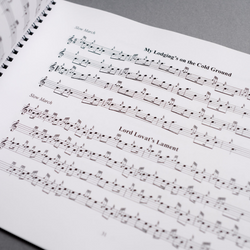 Slow March
My Lodging's on the Cold Ground
Slow March
Lord Lovat's Lament